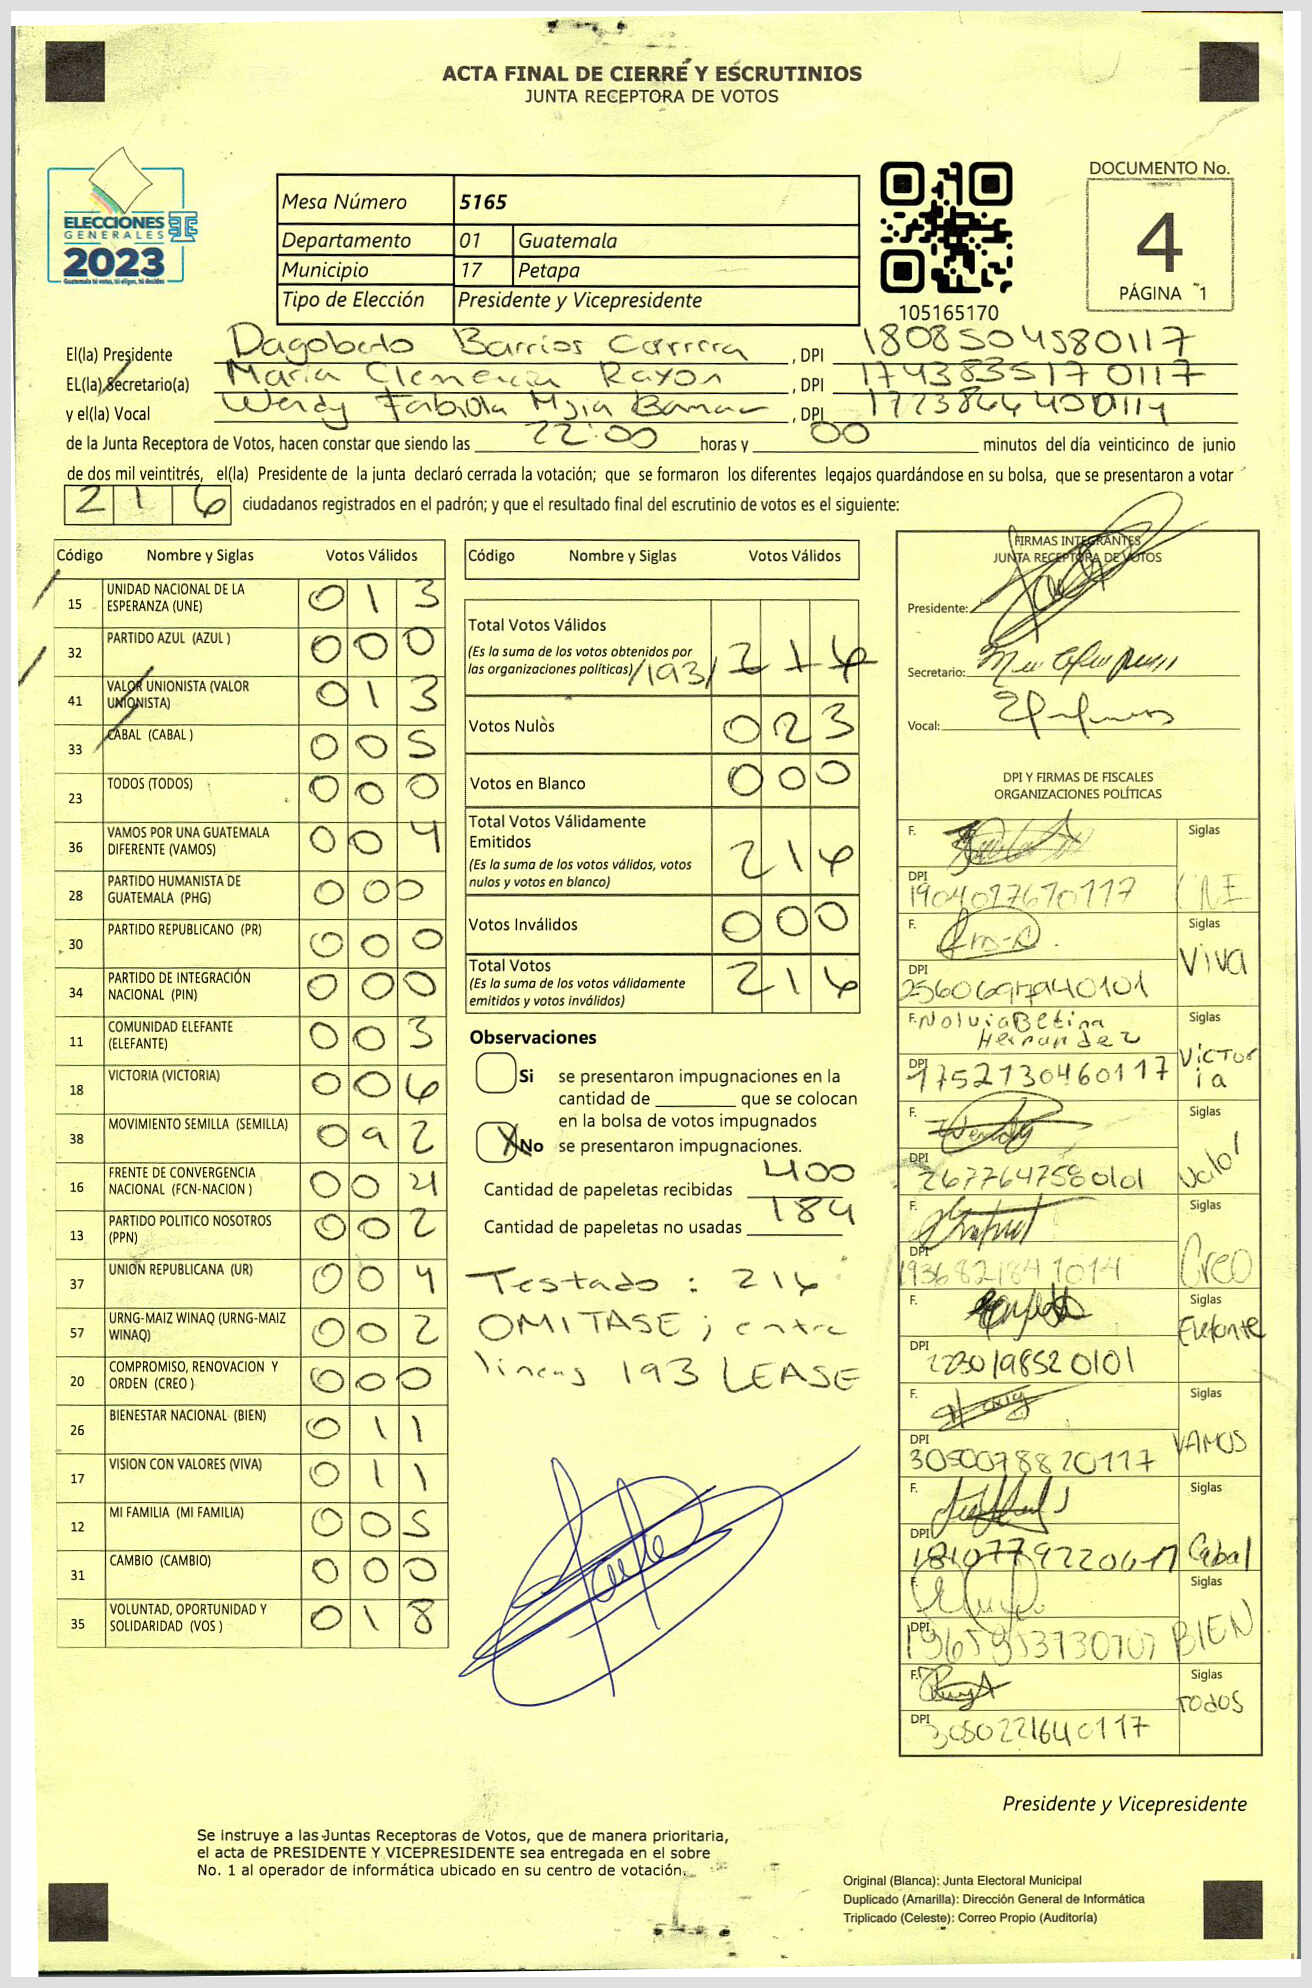 ACTA FINAL DE CIERRE Y ESCRUTINIOS
JUNTA RECEPTORA DE VOTOS
ELECCIONES
GENERALES
2023
Mesa Número 5165
Departamento 01 Guatemala
Municipio 17 Petapa
Tipo de Elección Presidente y Vicepresidente
105165170
DOCUMENTO No.
4
PÁGINA 1
El(la) Presidente Dagoberto Barrios Carrera, DPI 1808504580117
EL(la) Secretario(a) Maria Clemencia Rayon, DPI 1743835170117
y el(la) Vocal Wendy Fabiola, DPI
de la Junta Receptora de Votos, hacen constar que siendo las 22:00 horas y 00 minutos del día veinticinco de junio
de dos mil veintitrés, el(la) Presidente de la junta declaró cerrada la votación; que se formaron los diferentes legajos guardándose en su bolsa, que se presentaron a votar
216 ciudadanos registrados en el padrón; y que el resultado final del escrutinio de votos es el siguiente:
Código Nombre y Siglas Votos Válidos
15 UNIDAD NACIONAL DE LA ESPERANZA (UNE) 013
32 PARTIDO AZUL (AZUL ) 000
41 VALOR UNIONISTA (VALOR UNIONISTA) 013
33 CABAL (CABAL ) 005
23 TODOS (TODOS) 000
36 VAMOS POR UNA GUATEMALA DIFERENTE (VAMOS) 004
28 PARTIDO HUMANISTA DE GUATEMALA (PHG) 000
30 PARTIDO REPUBLICANO (PR) 000
34 PARTIDO DE INTEGRACIÓN NACIONAL (PIN) 000
11 COMUNIDAD ELEFANTE (ELEFANTE) 003
18 VICTORIA (VICTORIA) 006
38 MOVIMIENTO SEMILLA (SEMILLA) 092
16 FRENTE DE CONVERGENCIA NACIONAL (FCN-NACION ) 004
13 PARTIDO POLITICO NOSOTROS (PPN) 002
37 UNION REPUBLICANA (UR) 004
57 URNG-MAIZ WINAQ (URNG-MAIZ WINAQ) 002
20 COMPROMISO, RENOVACION Y ORDEN (CREO ) 000
26 BIENESTAR NACIONAL (BIEN) 011
17 VISION CON VALORES (VIVA) 011
12 MI FAMILIA (MI FAMILIA) 005
31 CAMBIO (CAMBIO) 000
35 VOLUNTAD, OPORTUNIDAD Y SOLIDARIDAD (VOS ) 018
Código Nombre y Siglas Votos Válidos
Total Votos Válidos
(Es la suma de los votos obtenidos por
las organizaciones políticas) /193/ 216
Votos Nulos 023
Votos en Blanco 000
Total Votos Válidamente
Emitidos
(Es la suma de los votos válidos, votos
nulos y votos en blanco) 216
Votos Inválidos 000
Total Votos
(Es la suma de los votos válidamente
emitidos y votos inválidos) 216
Observaciones
Si se presentaron impugnaciones en la
cantidad de ________ que se colocan
en la bolsa de votos impugnados
X No se presentaron impugnaciones.
Cantidad de papeletas recibidas 400
Cantidad de papeletas no usadas 184
Testado : 216
OMITASE ; entre
lineas 193 LEASE
FIRMAS INTEGRANTES
JUNTA RECEPTORA DE VOTOS
Presidente:
Secretario:
Vocal:
DPI Y FIRMAS DE FISCALES
ORGANIZACIONES POLÍTICAS
F. Siglas
DPI 1904027670117 UNE
F. Siglas
DPI Viva
F. Nolvia Betina Hernandez Siglas
DPI 1752730460117 Victoria
F. Siglas
DPI 2677647580101 Valor
F. Siglas
DPI Creo
F. Siglas
DPI 2230198520101 Elefante
F. Siglas
DPI 3050078820117 VAMOS
F. Siglas
DPI Cabal
F. Siglas
DPI BIEN
F. Siglas
DPI 3050221640117 TODOS
Presidente y Vicepresidente
Se instruye a las Juntas Receptoras de Votos, que de manera prioritaria,
el acta de PRESIDENTE Y VICEPRESIDENTE sea entregada en el sobre
No. 1 al operador de informática ubicado en su centro de votación.
Original (Blanca): Junta Electoral Municipal
Duplicado (Amarilla): Dirección General de Informática
Triplicado (Celeste): Correo Propio (Auditoría)